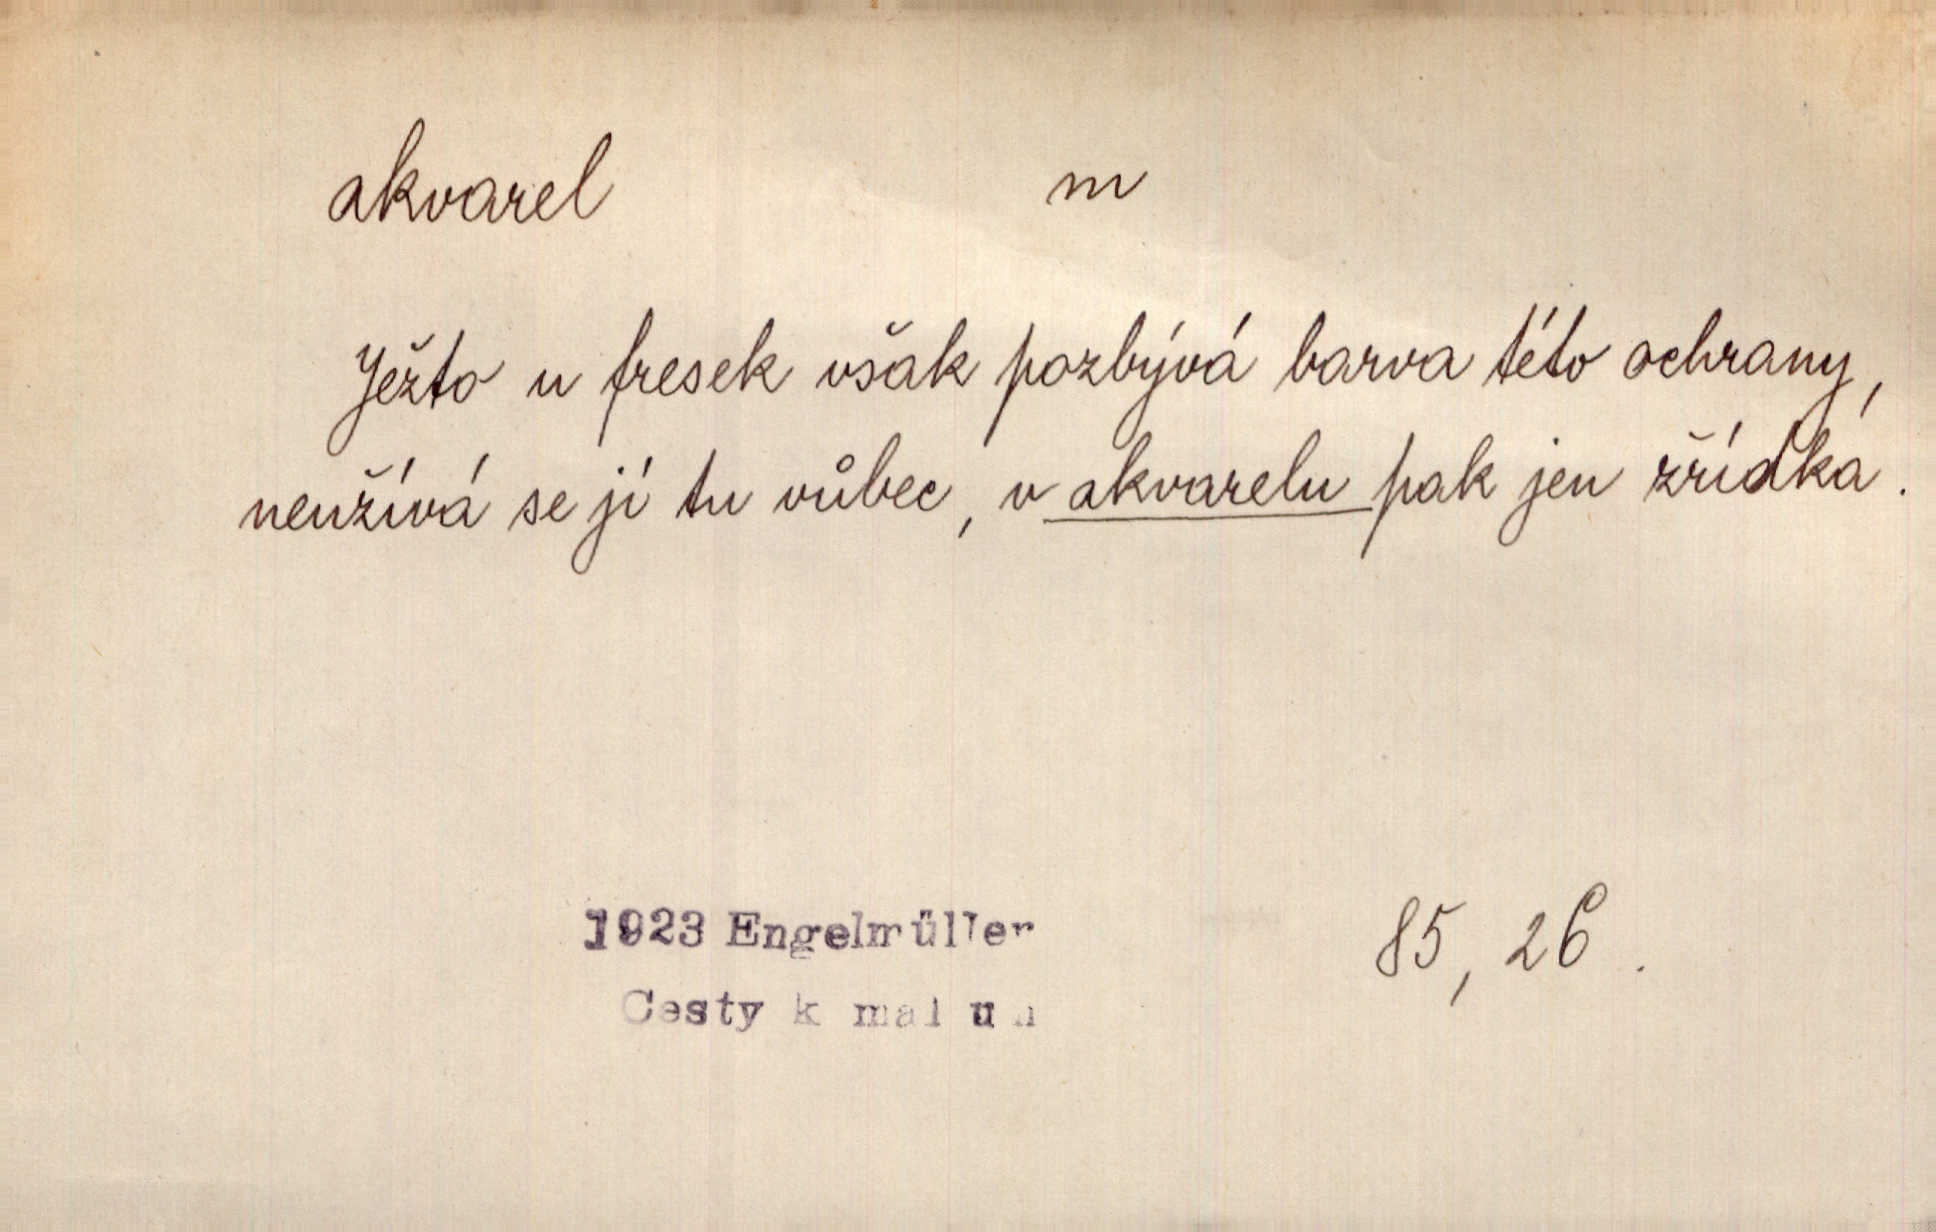 akvarel m
Ježto u fresek však pozbývá barva této ochrany,
neužívá se jí tu vůbec, v akvarelu pak jen zřídka.
1923 Engelmüller 85, 26.
Cesty k